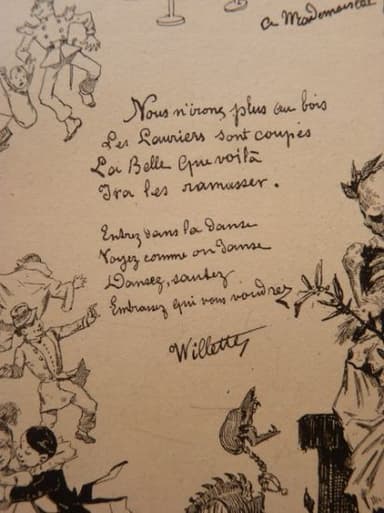 a Mademoisel
Nous n'irons plus au bois
Les Lauriers sont coupés
La Belle que voilà
Ira les ramasser.
Entrez dans la danse
Voyez comme on danse
Dansez, sautez
Embrassez qui vous voudrez
Willette